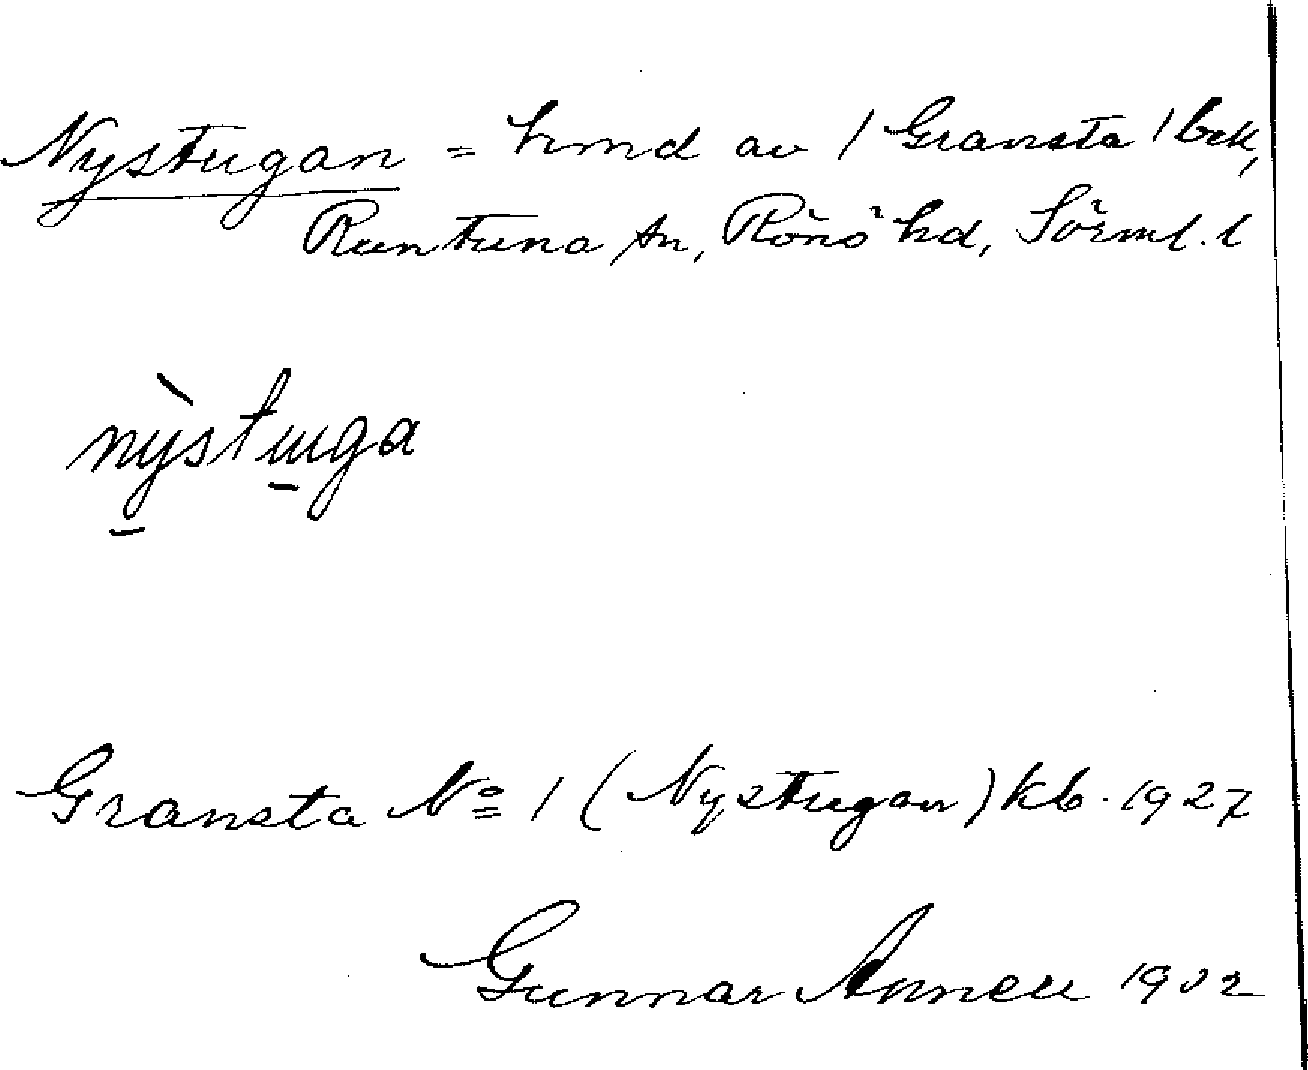 Nystugan = hmd av 1 Gransta 1 bek,
Runtuna sn, Rönö hd, Sörml. l
nỳstuga
Gransta No 1 (Nystugan) kb. 1927
Gunnar 19